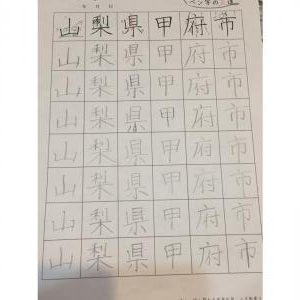 年 月 日
ペン字の
山 梨 県 甲 府 市
山 梨 県 甲 府 市
山 梨 県 甲 府 市
山 梨 県 甲 府 市
山 梨 県 甲 府 市
山 梨 県 甲 府 市
山 梨 県 甲 府 市
山 梨 県 甲 府 市